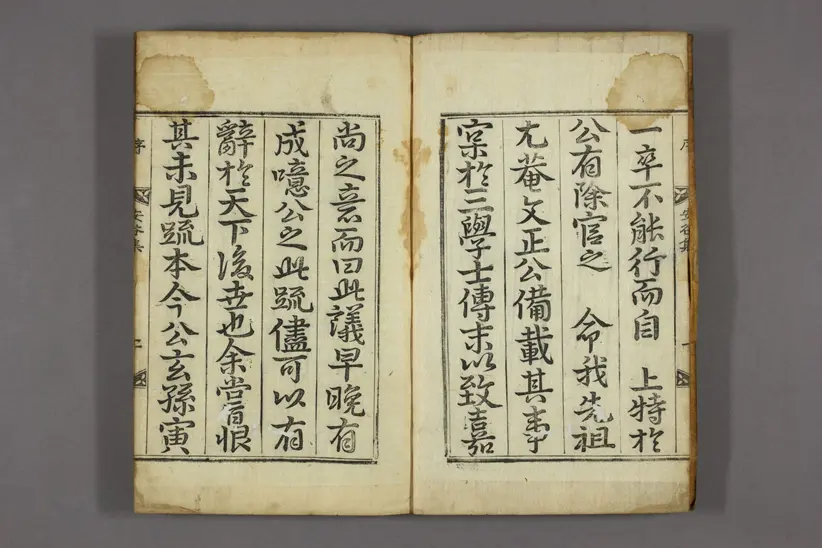 一卒不能行而自 上特於
公有除官之 命我先祖
尤菴文正公備載其事
寀於三學士傳末以致嘉
尚之意而曰此議早晚有
成噫公之此疏儘可以有
辭於天下後世也余嘗自恨
其未見疏本今公玄孫寅
序 安谷集